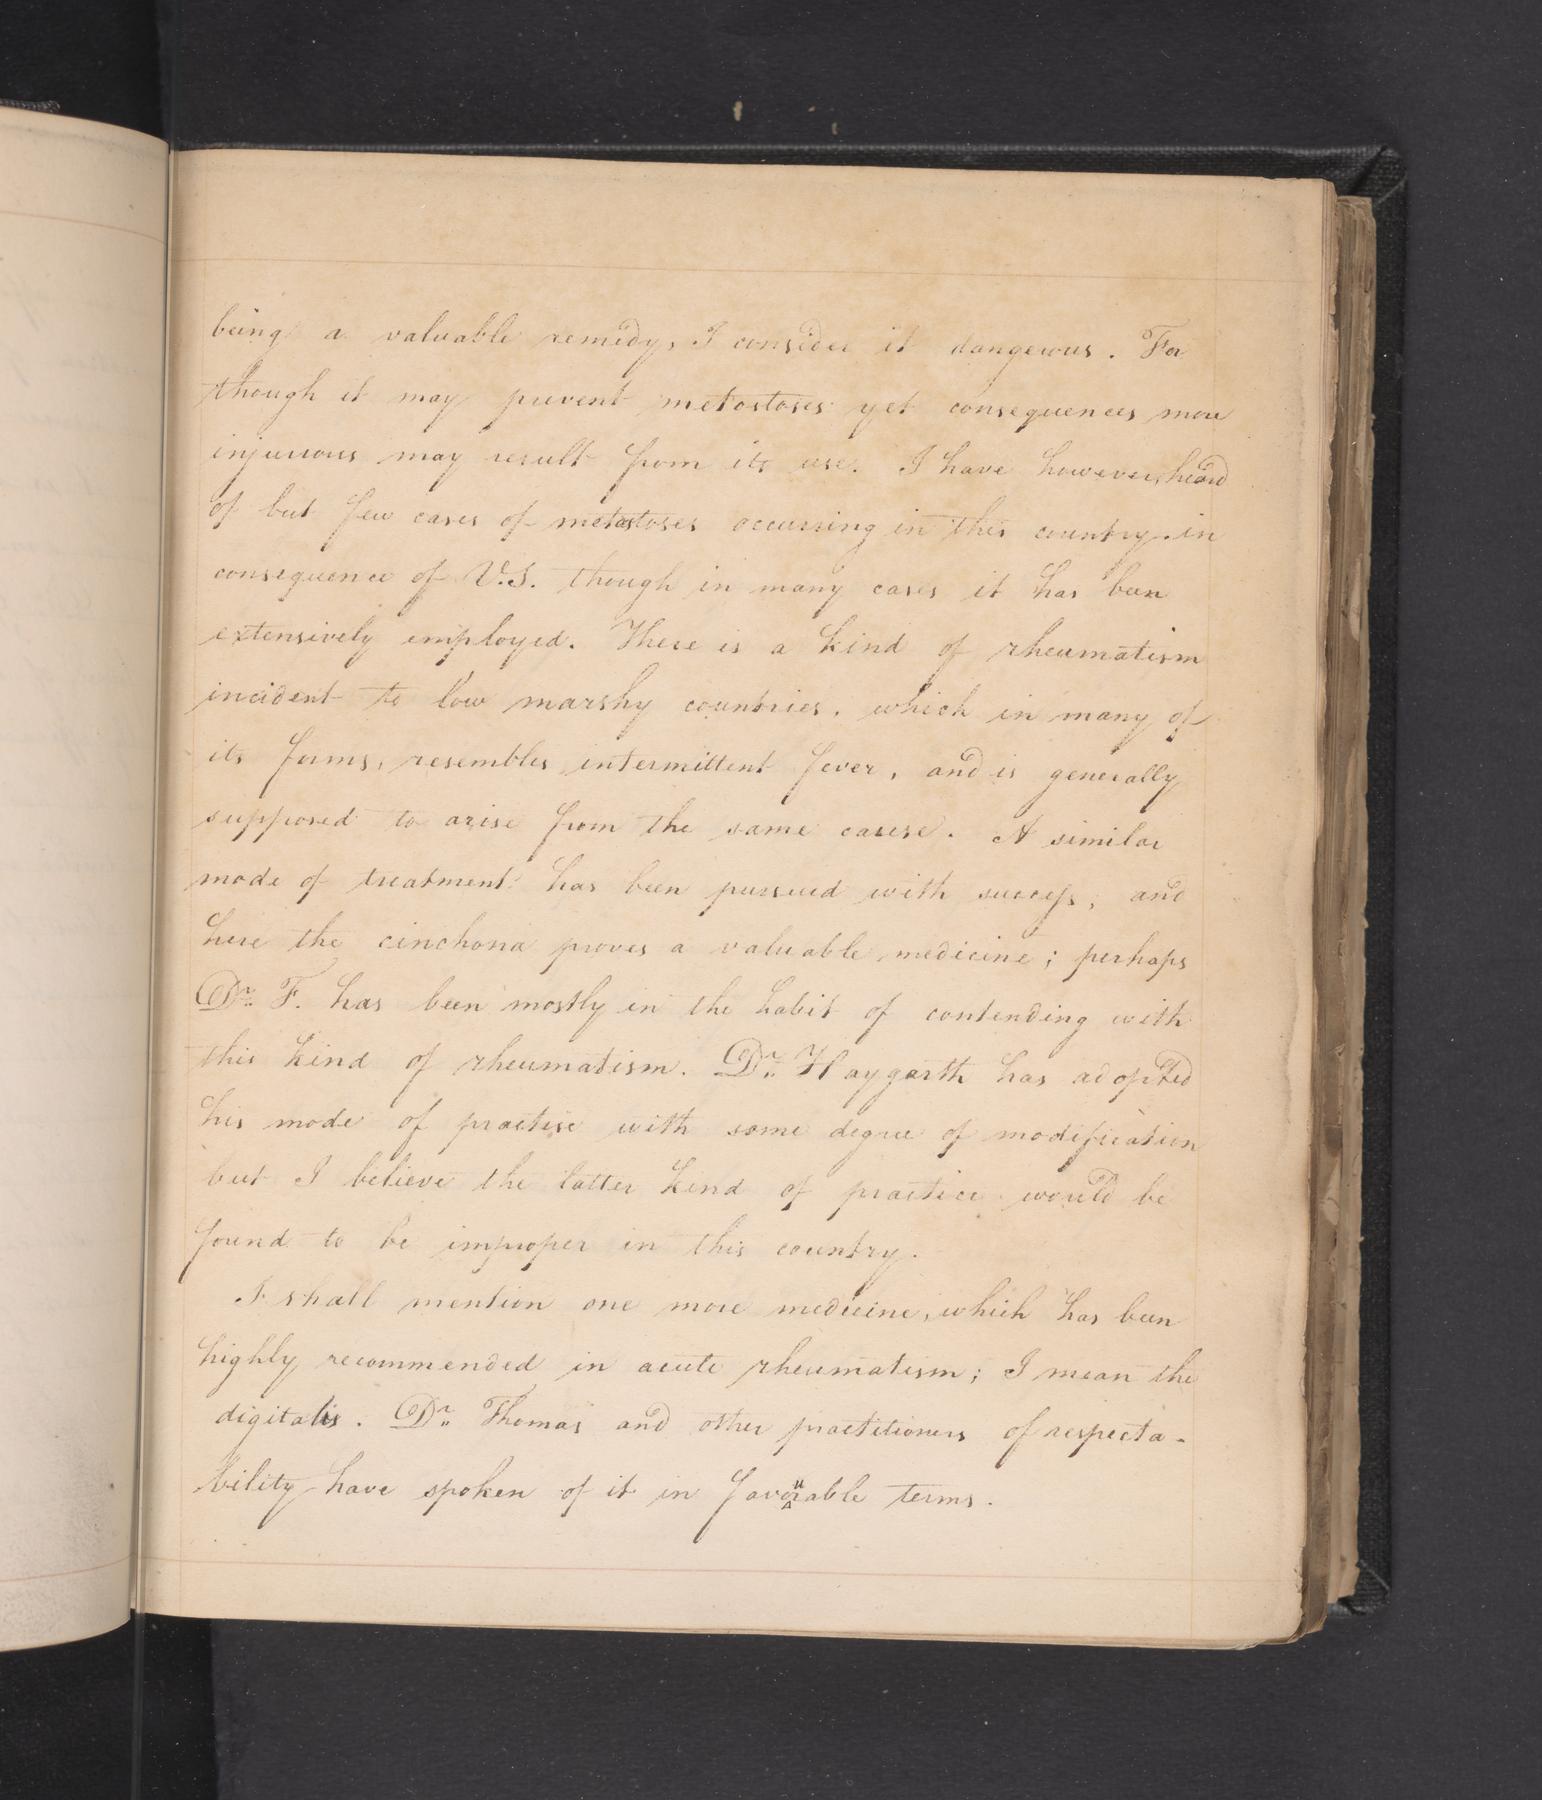 being a valuable remedy, I consider it dangerous. For
though it may prevent metostoses yet consequences more
injurious may result from its use. I have however, heard
of but few cases of metastoses occurring in this country in
consequence of V.S. though in many cases it has been
extensively employed. There is a kind of rheumatism
incident to low marshy countries, which in many of
its forms, resembles intermittent fever, and is generally
supposed to arise from the same cause. A similar
mode of treatment has been pursued with success, and
here the cinchona proves a valuable medicine; perhaps
Dr. F. has been mostly in the habit of contending with
this kind of rheumatism. Dr. Haygarth has adopted
his mode of practise with some degree of modification
but I believe the latter kind of practice would be
found to be improper in this country.
I shall mention one more medicine, which has been
highly recommended in acute rheumatism; I mean the
digitalis. Dr. Thomas and other practitioners of respecta-
bility have spoken of it in favourable terms.